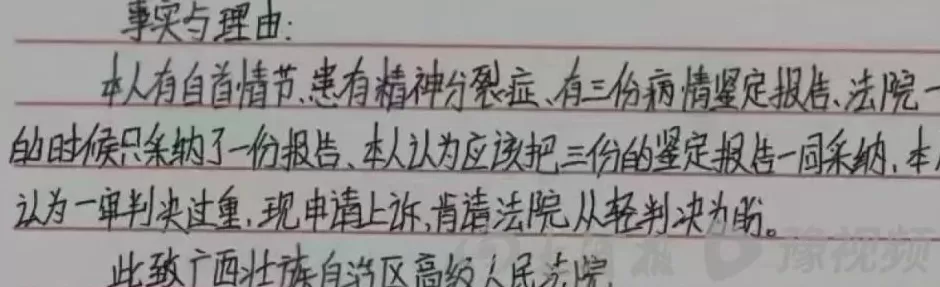 事实与理由:
本人有自首情节、患有精神分裂症、有三份病情鉴定报告、法院一
的时候只采纳了一份报告、本人认为应该把三份的鉴定报告一同采纳,本
认为一审判决过重,现申请上诉,肯请法院从轻判决为盼。
此致广西壮族自治区高级人民法院
豫视频